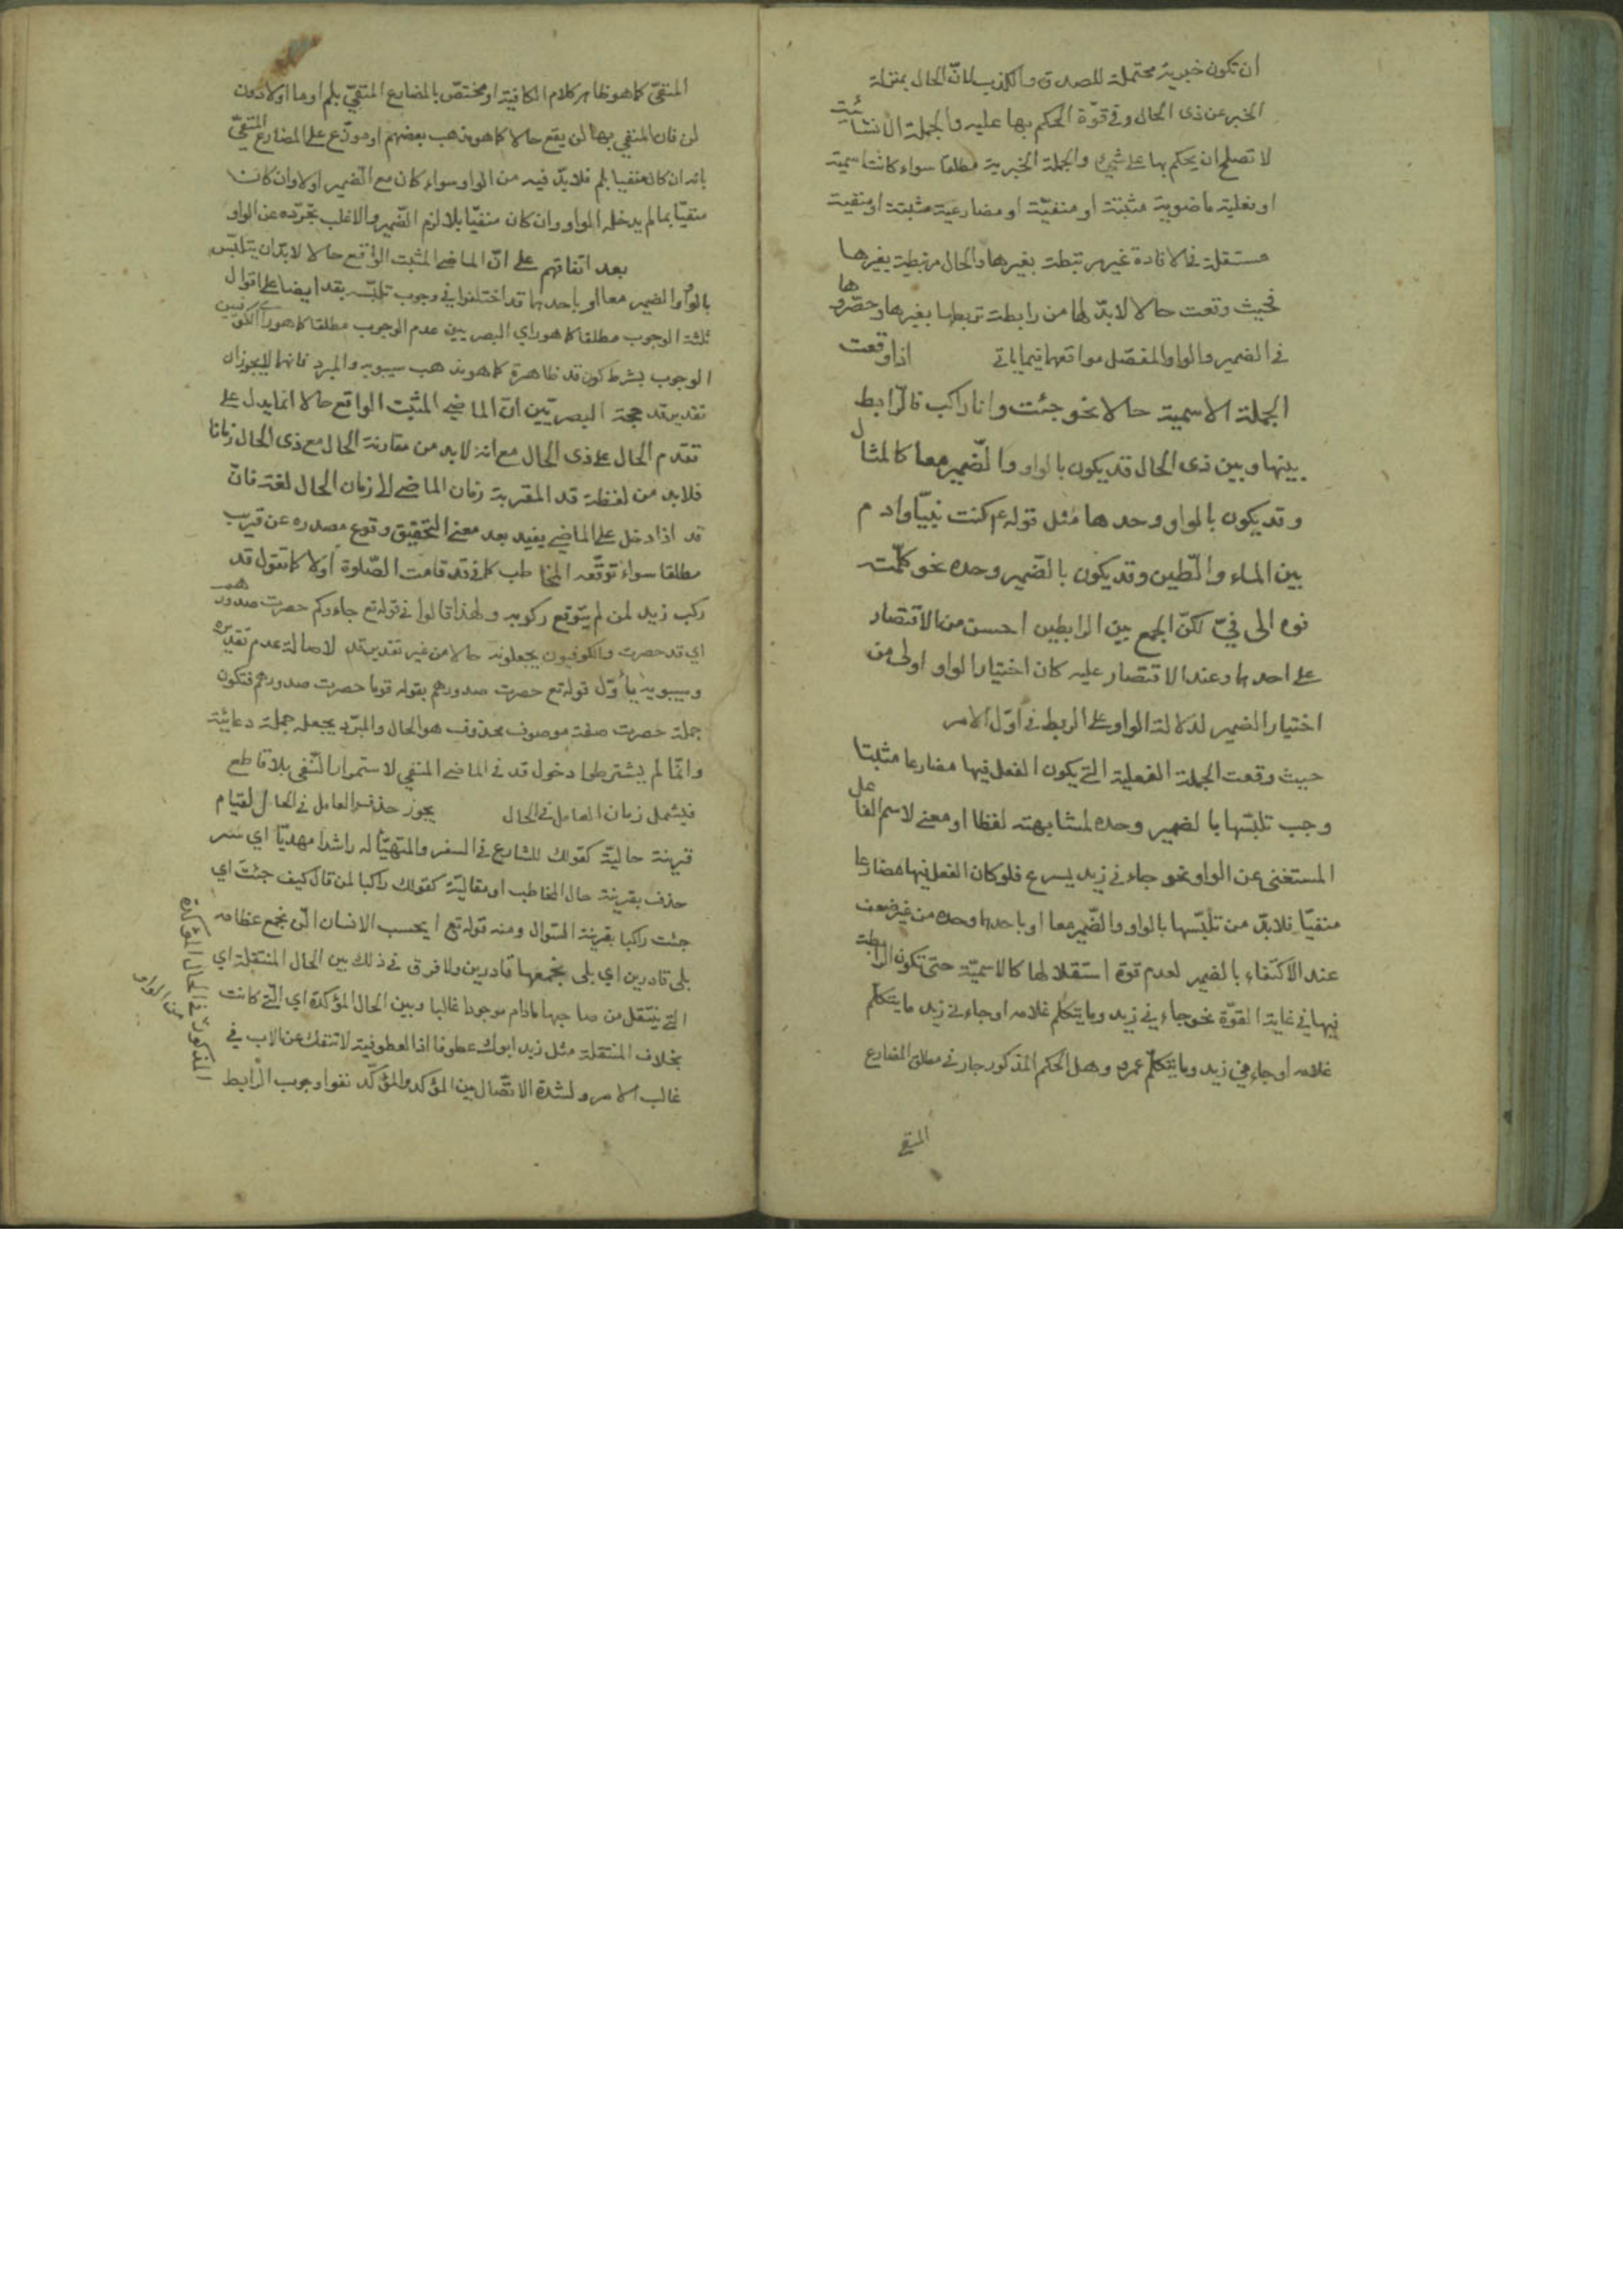 ان تكون خبرية محتملة للصدق والكذب لانّ الحال بمنزلة
الخبر عن ذى الحال وفى قوّة الحكم بها عليه والجملة الانشائيت
لا تصلح ان يحكم بها على شئ والجملة الخبرية مطلقا سواء كانت اسمية
او فعلية ماضوية مثبتة او منفيّة او مضارعية مثبتة او منفية
مستقلة فى الافادة غير مرتبطة بغيرها والحال مرتبطة بغيرها
فحيث وقعت حالا لابدّ لها من رابطة تربطها بغيرها وحصروها
فى الضمير والواو والمفصّل مواقعها فيما ياتى اذا وقعت
الجملة الاسمية حالا نحو جئت وانا راكب فالرّابط
بينها وبين ذى الحال قد يكون بالواو والضّمير معا كالمثال
وقد يكون بالواو وحدها مثل قوله عم كنت نبيّا وادم
بين الماء والطّين وقد يكون بالضّمير وحده نحو كلّمت
فوه الى فيّ لكنّ الجمع بين الرابطين احسن من الاقتصار
على احدهما وعند الاقتصار عليه كان اختيار الواو اولى من
اختيار الضمير لدلالة الواو على الربط فى اوّل الامر
حيث وقعت الجملة الفعلية التى يكون الفعل فيها مضارعا مثبتا
وجب تلبّسها بالضمير وحده لمشابهته لفظا او معنى لاسم الفاعل
المستغنى عن الواو نحو جاءنى زيد يسرع فلو كان الفعل فيها مضارعا
منفيّا فلابدّ من تلبّسها بالواو والضّمير معا او باحدهما وحده من غير ضعف
عند الاكتفاء بالضمير لعدم قوة استقلالها كالاسميّة حتى تكون الرابطة
فيها فى غاية القوّة نحو جاءنى زيد وما يتكلم غلامه او جاءنى زيد ما يتكلّم
غلامه او جاءنى زيد وما يتكلّم عمرو وهل الحكم المذكور جار فى مطلق المضارع
المنفى
المنفيّ كما هو ظاهر كلام الكافية او مختصّ بالمضارع المنفيّ بلم او ما او لا دون
لن فان المنفى بها لن يقع حالا كما هو مذهب بعضهم او موزّع على المضارع المنفيّ
بانه ان كان منفيا بلم فلابدّ فيه من الواو سواء كان مع الضمير اولا وان كان
منفيّا بما لم يدخله الواو وان كان منفيّا بلا لزم الضّمير والاغلب تجرّده عن الواو
بعد اتفاقهم على انّ الماضى المثبت الواقع حالا لابدّ ان يتلبّس
بالواو والضمير معا او باحدهما قد اختلفوا فى وجوب تلبّسه بقد ايضا على اقوال
ثلثة الوجوب مطلقا كما هو راي البصريين عدم الوجوب مطلقا كما هو رأى الكوفيين
الوجوب بشرط كون قد ظاهرة كما هو مذهب سيبويه والمبرد فانهما لا يجوزان
تقدير قد حجة البصريّين انّ الماضى المثبت الواقع حالا انما يدل على
تقدّم الحال على ذى الحال مع انه لابد من مقارنة الحال مع ذى الحال زمانا
فلابد من لفظة قد المقربة زمان الماضى الى زمان الحال لغة فانّ
قد اذا دخل على الماضى يفيد بعد معنى التحقيق وقوع مصدره عن قريب
مطلقا سواء توقّعه المخاطب كما فى قد قامت الصّلوة اولا كما تقول قد
ركب زيد لمن لم يتوقع ركوبه ولهذا قالوا فى قوله تع جاءوكم حصرت صدورهم
اي قد حصرت والكوفيون يجعلونه حالا من غير تقدير قد لاصالة عدم تقديره
وسيبويه يأوّل قوله تع حصرت صدورهم بقوله قوما حصرت صدورهم فتكون
جملة حصرت صفة موصوف محذوف هو الحال والمبرّد يجعله جملة دعائية
وانّما لم يشترطوا دخول قد فى الماضى المنفى لاستمرار النّفى بلا قاطع
فيشمل زمان العامل فى الحال يجوز حذف العامل فى الحال لقيام
قرينة حاليّة كقولك للشارع فى السفر والمتهيّأ له راشدا مهديّا اي سر
حذف بقرينة حال المخاطب او مقاليّة كقولك راكبا لمن قال كيف جئت اي
جئت راكبا بقرينة السّوال ومنه قوله تع ايحسب الانسان الّن نجمع عظامه
بلى قادرين اي بلى نجمعها قادرين ولا فرق فى ذلك بين الحال المنتقلة اي
التى ينتقل من صاحبها مادام موجودا غالبا وبين الحال المؤكدة اي الّتى كانت
بخلاف المنتقلة مثل زيد ابوك عطوفا اذ العطوفية لا تنفك عن الاب فى
غالب الامر ولشدة الاتّصال بين المؤكد والمؤكّد نفوا وجوب الرّابط
المذكور فى الحال المؤكدة
من الواو